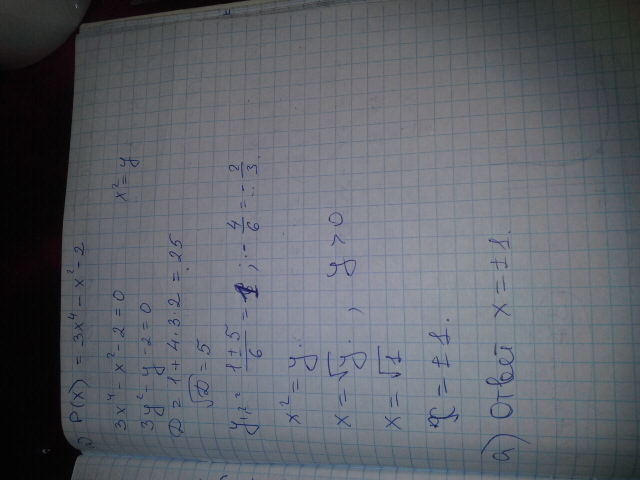 а) P(x) = 3x⁴ - x² - 2
3x⁴ - x² - 2 = 0 x² = y
3y² - y - 2 = 0
D = 1 + 4·3·2 = 25
√D = 5
y₁,₂ = (1±5)/6 = 1 ; -4/6 = -2/3.
x² = y.
x = √y , y > 0
x = √1
x = ±1.
а) Ответ x = ±1.